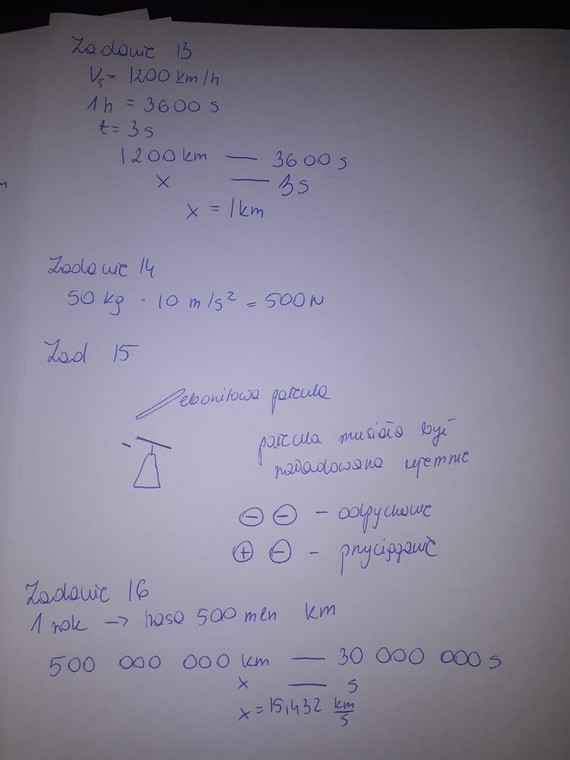 Zadanie 13
Vs = 1200 km/h
1h = 3600 s
t = 3s
1200 km — 3600 s
x — 3s
x = 1km
Zadanie 14
50 kg · 10 m/s² = 500N
Zad 15
ebonitowa pałeczka
pałeczka musiała być
naładowana ujemnie
⊖ ⊖ - odpychanie
⊕ ⊖ - przyciąganie
Zadanie 16
1 rok → 500 mln km
500 000 000 km — 30 000 000 s
x — s
x = 15,432 km/s